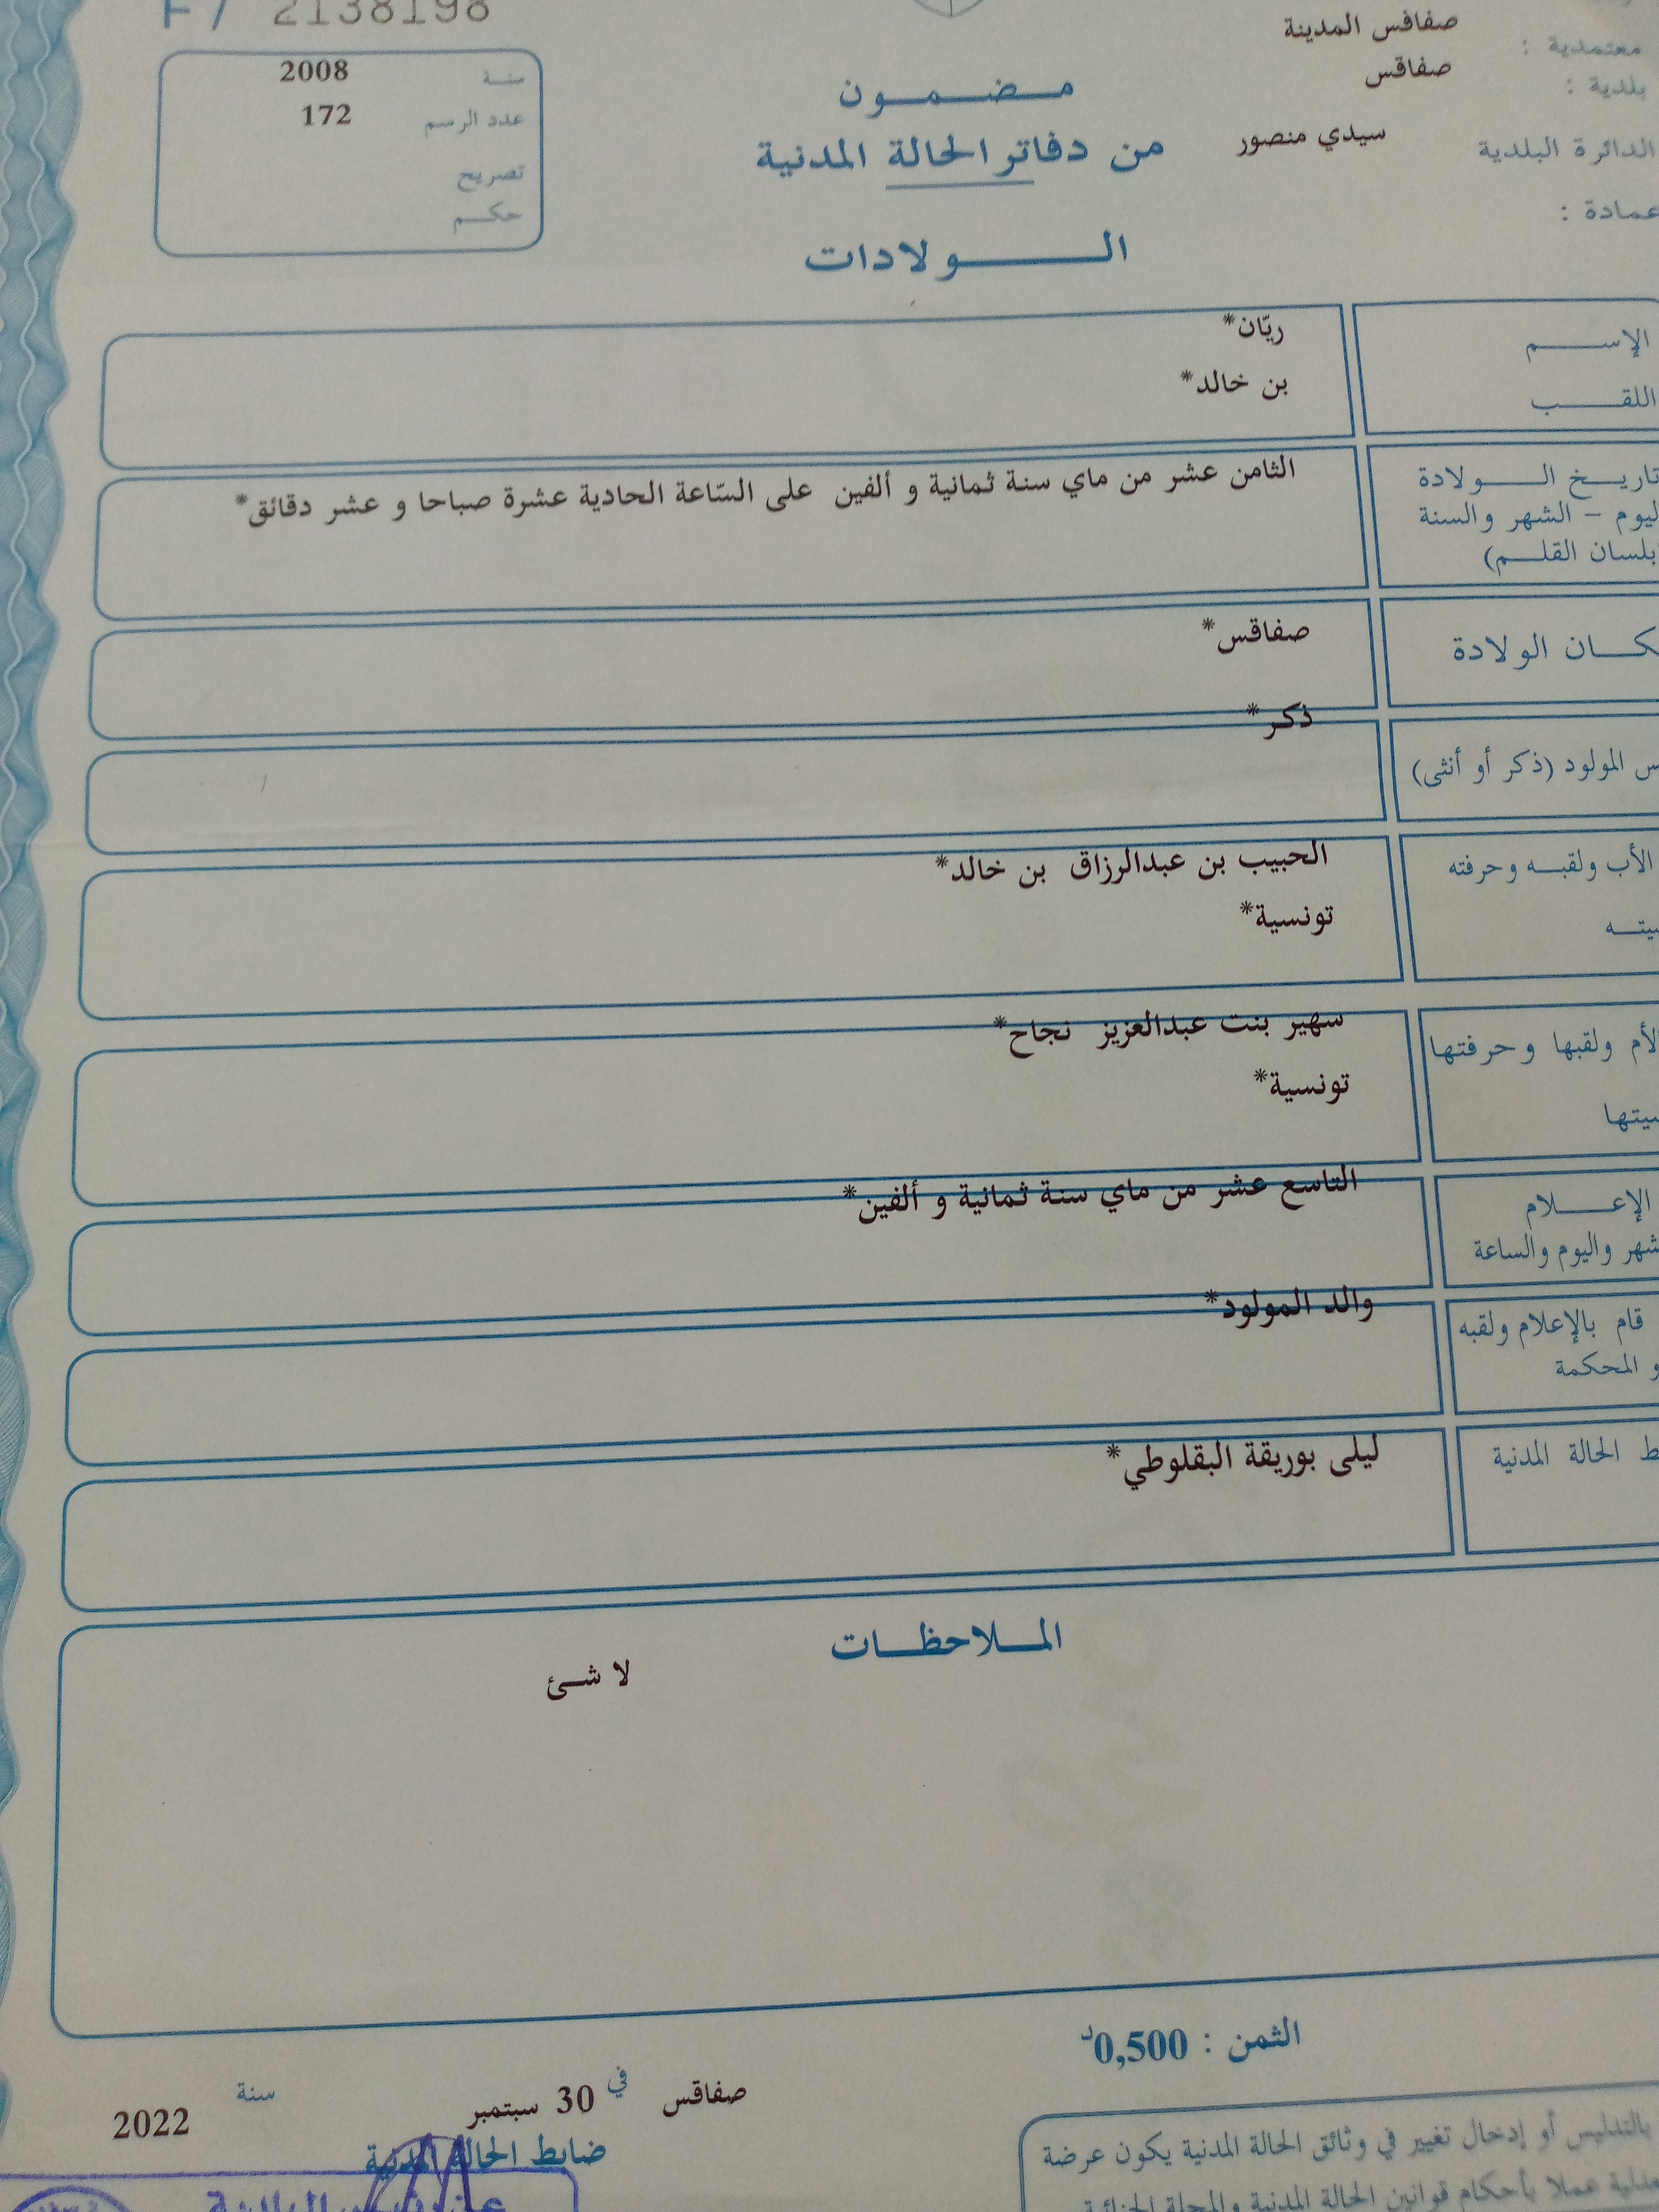 F7 2138198
صفاقس المدينة
معتمدية :
صفاقس
بلدية :
سيدي منصور
الدائرة البلدية
عمادة :
سنة 2008
عدد الرسم 172
تصريح
حكم
مضمون
من دفاتر الحالة المدنية
الولادات
الإسم
ريّان*
اللقب
بن خالد*
تاريخ الولادة
اليوم - الشهر والسنة
(بلسان القلم)
الثامن عشر من ماي سنة ثمانية و ألفين على السّاعة الحادية عشرة صباحا و عشر دقائق*
مكان الولادة
صفاقس*
المولود (ذكر أو أنثى)
ذكر*
الأب ولقبه وحرفته
الحبيب بن عبدالرزاق بن خالد*
تونسية*
الأم ولقبها وحرفتها
سهير بنت عبدالعزيز نجاح*
تونسية*
الإعلام
واليوم والساعة
التاسع عشر من ماي سنة ثمانية و ألفين*
قام بالإعلام ولقبه
المحكمة
والد المولود*
الحالة المدنية
ليلى بوريقة البقلوطي*
الملاحظات
لا شئ
الثمن : 0,500د
صفاقس في 30 سبتمبر سنة 2022
ضابط الحالة المدنية
بالتدليس أو إدخال تغيير في وثائق الحالة المدنية يكون عرضة
عملا بأحكام قوانين الحالة المدنية والمجلة الجنائية